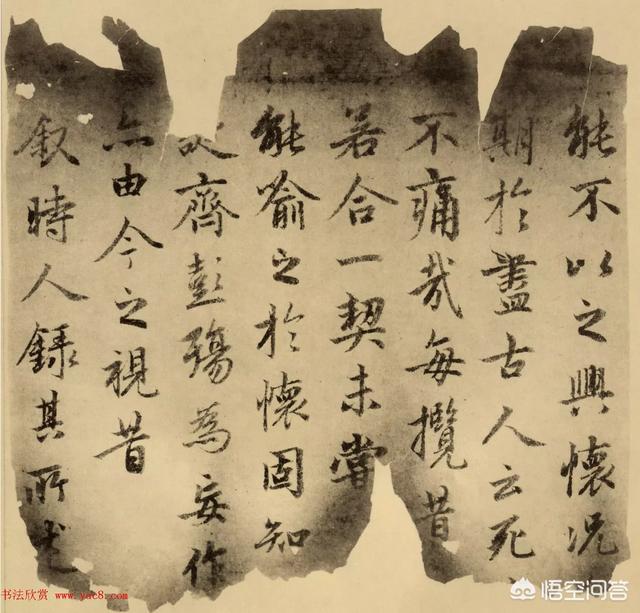 能不以之興懷況
期於盡古人云死
不痛哉每攬昔
若合一契未嘗
能喻之於懷固知
齊彭殤為妄作
由今之視昔
叙時人錄其所述
书法欣赏 www.yac8.com
悟空问答